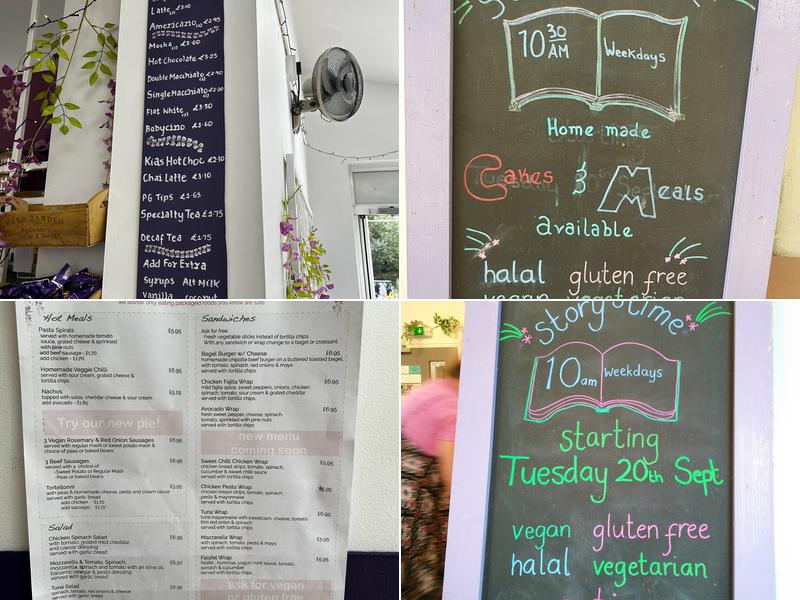 Latte
Americano £2.95
Mocha £3.60
Hot Chocolate £3.25
Double Macchiato £2.90
Single Macchiato £2.20
Flat White £3.30
Babycino £1.60
Kias Hot Choc £2.10
Chai Latte £3.10
PG Tips £1.65
Specialty Tea £1.75
Decaf Tea £1.75
Add For Extra
Syrups Alt Milk
vanilla coconut
10 30 AM
Weekdays
Home made
Cakes & Meals
available
halal gluten free
vegan vegetarian
we advise only eating packaged foods you know are safe
Hot Meals
Pasta Spirals £5.95
served with homemade tomato
sauce, grated cheese & sprinkled
with pine nuts
add beef sausage - £1.70
add chicken - £1.70
Homemade Veggie Chilli £6.95
served with sour cream, grated cheese &
tortilla chips
Nachos £5.25
topped with salsa, cheddar cheese & sour cream
add avocado - £1.85
Try our new pie!
3 Vegan Rosemary & Red Onion Sausages £6.95
served with regular mash or sweet potato mash &
choice of peas or baked beans
3 Beef Sausages £6.95
served with a choice of
-Sweet Potato or Regular Mash
-Peas or baked beans
Tortellonni £5.95
with peas & homemade cheese, pesto and cream sauce
served with garlic bread
add chicken £1.70
add sausage £1.70
Salad
Chicken Spinach Salad £6.95
with tomato, grated mild cheddar,
and caesar dressing
served with garlic bread
Mozzarella & Tomato, Spinach, £6.50
mozzarella, spinach and tomato with an olive oil,
balsamic vinegar & pesto dressing
served with garlic bread
Tuna Salad £6.95
spinach, tomato, red onions & cheese
served with garlic bread
Sandwiches
Ask for free:
Fresh vegetable sticks instead of tortilla chips.
With any sandwich or wrap change to a bagel or croissant.
Bagel Burger w/ Cheese £6.95
homemade chipotle beef burger on a buttered toasted bagel,
with tomato, spinach, red onions & mayo
served with tortilla chips
Chicken Fajita Wrap £6.95
mild fajita spice, sweet peppers, onions, chicken,
spinach, tomato, sour cream & grated cheddar
served with tortilla chips
Avocado Wrap £6.95
fresh sweet pepper, cheese, spinach,
tomato, sprinkled with pine nuts
served with tortilla chips
new menu
coming soon
Sweet Chilli Chicken Wrap £5.95
chicken breast strips, tomato, spinach,
cucumber & sweet chilli sauce
served with tortilla chips
Chicken Pesto Wrap £5.95
chicken breast strips, tomato, spinach,
pesto & mayonnaise
served with tortilla chips
Tuna Wrap £5.95
tuna mayonnaise with sweetcorn, cheese, tomato,
thin red onion & spinach
served with tortilla chips
Mozzarella Wrap £5.95
with spinach, tomato, pesto & mayo
served with tortilla chips
Falafel Wrap £5.95
falafel, hummus, yogurt mint sauce, tomato,
spinach & cucumber
served with tortilla chips
ask for vegan
or gluten free
storytime
10am
Weekdays
starting
Tuesday 20th Sept
vegan gluten free
halal vegetarian